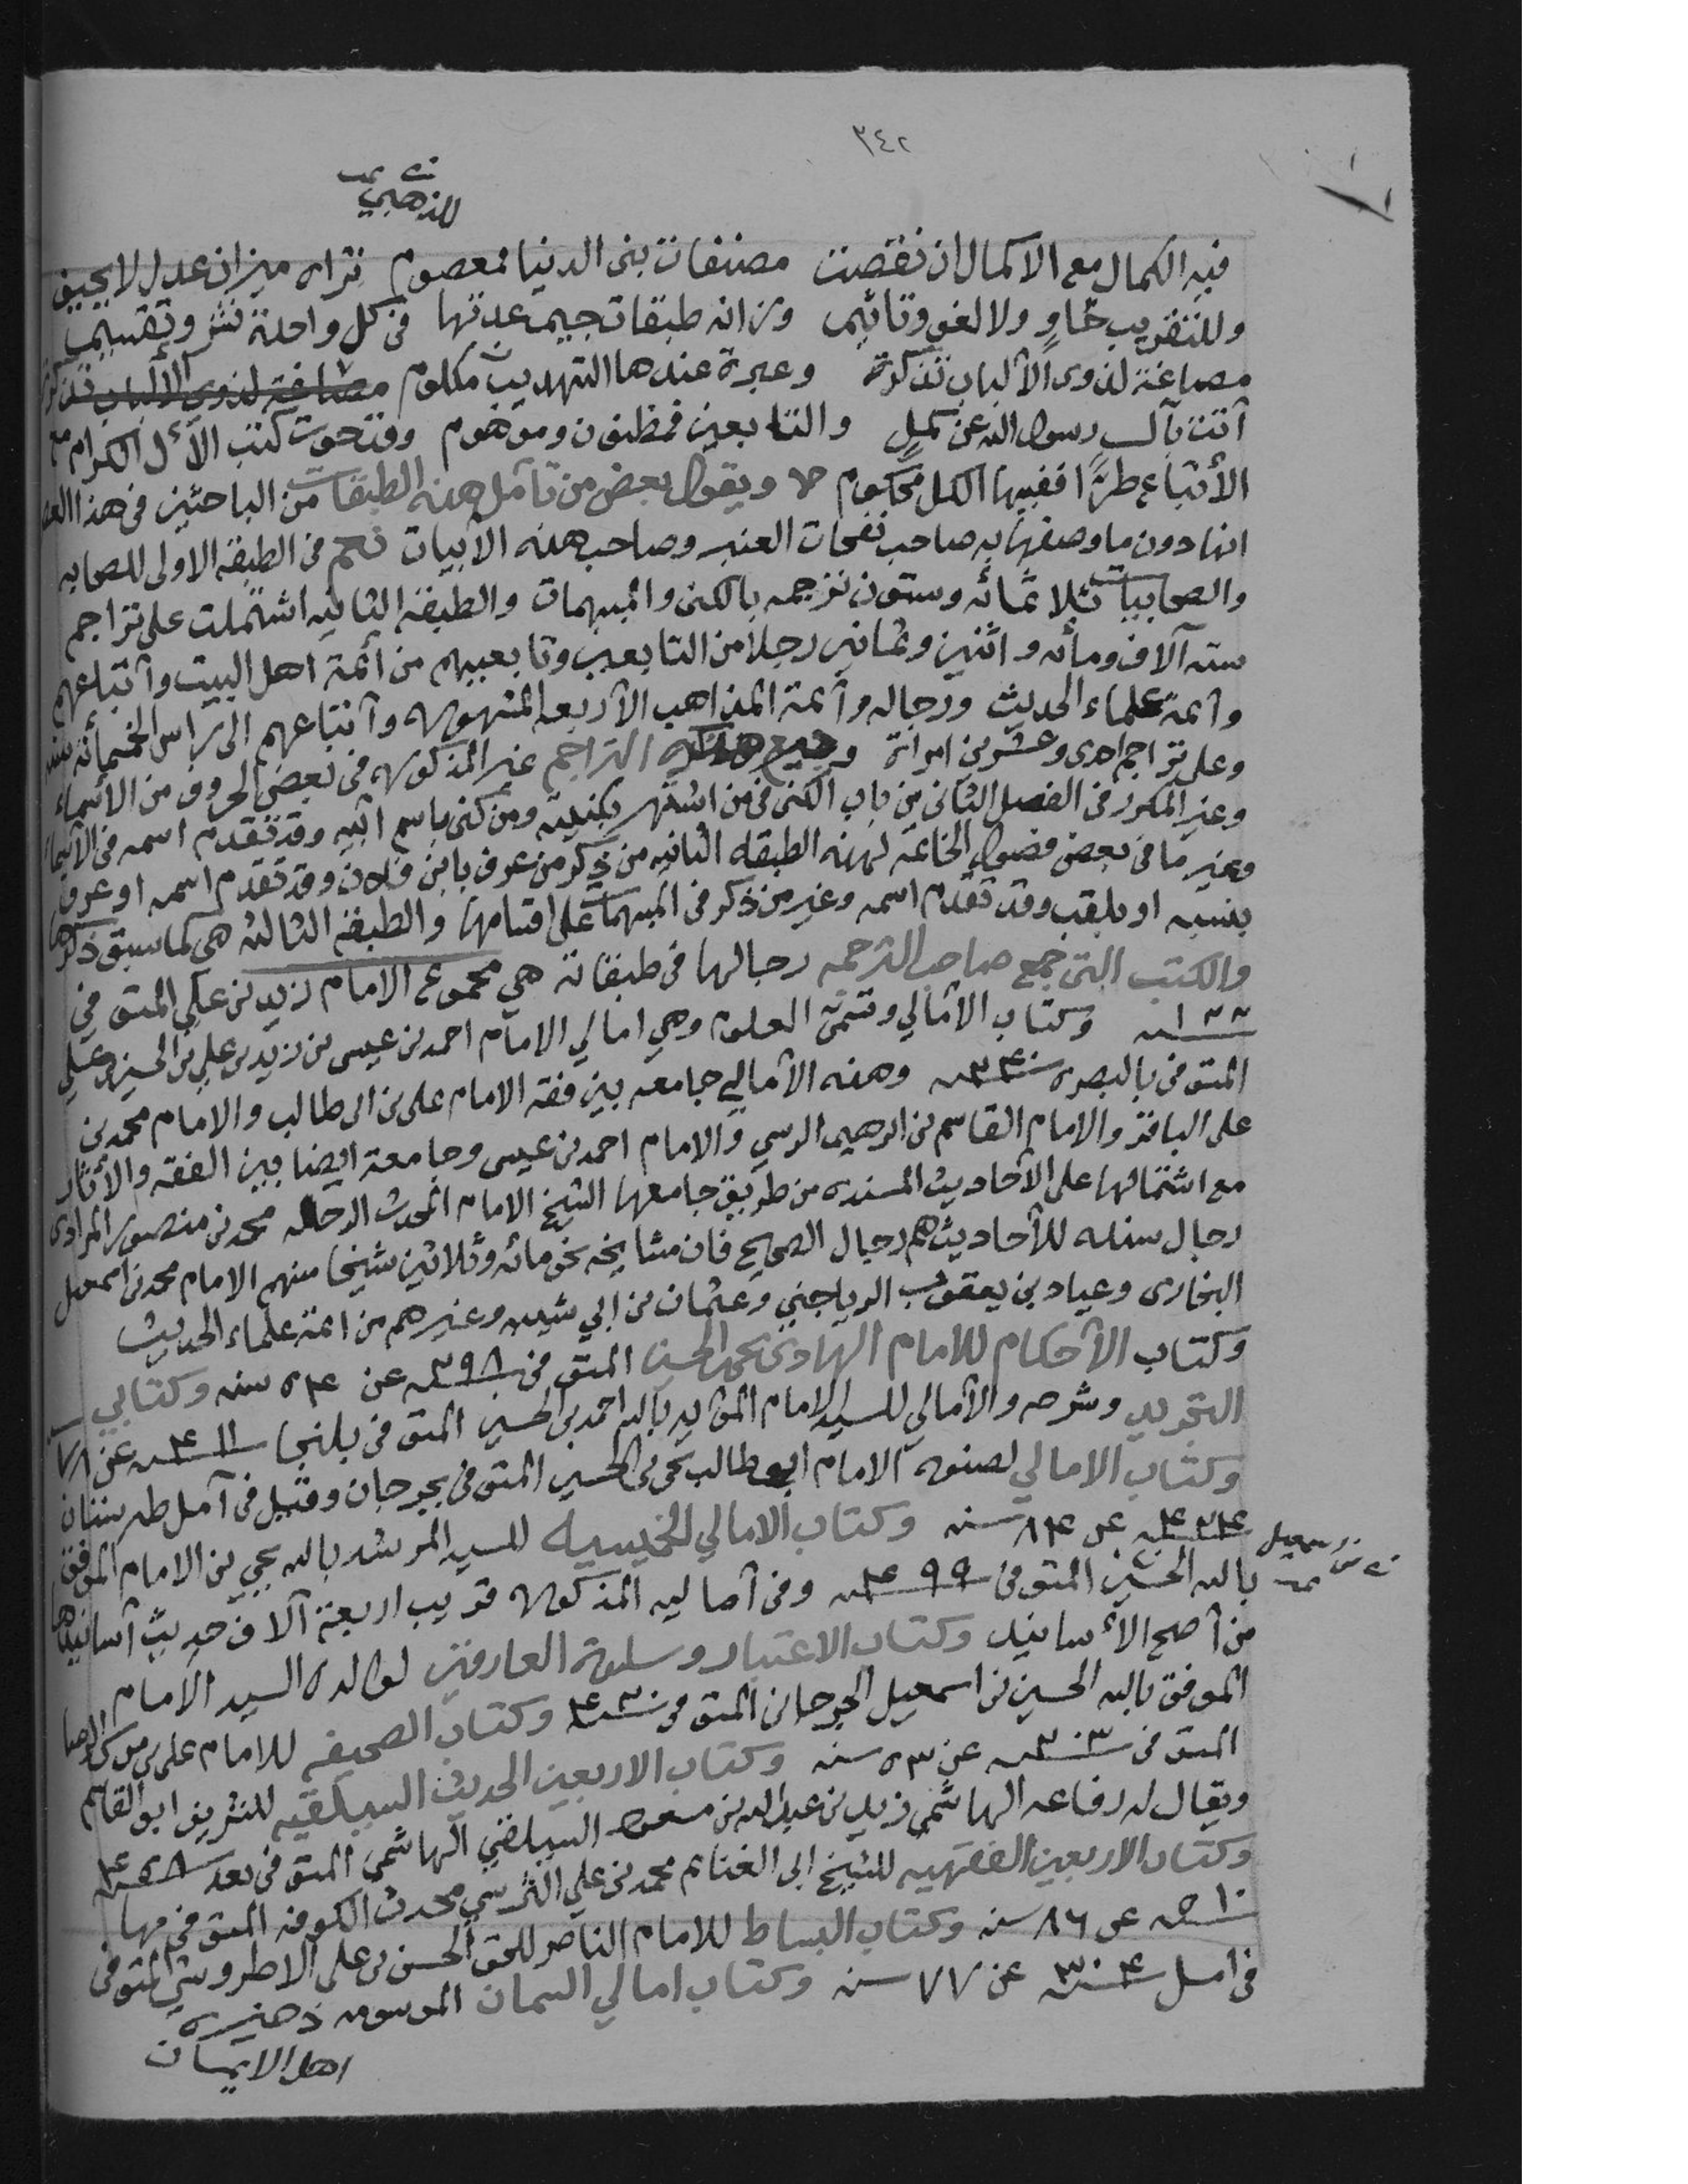 ٣٤٢
للذهبي
فيه الكمال مع الاكمال ان نقصت مصنفات بنى الدنيا فمعصوم تراه ميزان عدل لا يحيف
وللتقريب حاوٍ ولا لغو وتأثيم وزانه طبقات جيم عدتها في كل واحدة نشر وتقسيم
مصاغة لذوى الألباب تذكرة وعبرة عندها التهذيب مكلوم مصاغة لذوى الألباب تذكرة
آتت بآل رسول الله عن كملٍ والتابعين فمظنون وموهوم وقد حوت كتب الآل الكرام مع
الأتباع طرًّا ففيها الكل محكوم ويقول بعض من تأمل هذه الطبقات من الباحثين في هذا العصر
انها دون ما وصفها به صاحب نفحات العنبر وصاحب هذه الأبيات نعم في الطبقة الاولى للصحابه
والصحابيات ثلاثمائه وستون ترجمه بالكنى والمبهمات والطبقة الثانيه اشتملت على تراجم
سته آلاف ومائه واثنين وثمانين رجلا من التابعين وتابعيهم من أئمة اهل البيت وأتباعهم
وأئمة علماء الحديث ورجاله وأئمة المذاهب الأربعه المشهوره وأتباعهم الى رأس الخمسمائه سنه
وعلى تراجم احدى وعشرين امرأة وجميع هذه التراجم غير المذكوره في بعض الحروف من الأسماء
وغير المكرر في الفصل الثاني من باب الكنى في من اشتهر بكنيته ومن كنى باسم ابيه وقد تقدم اسمه في الأسماء
وغير ما في بعض فصول الخاتمه لهذه الطبقه الثانيه من ذكر من عرف بابن فلان وقد تقدم اسمه او عرف
بنسبه او بلقب وقد تقدم اسمه وغير من ذكر في المبهمات على اقسامها والطبقة الثالثه هي كما سبق ذكرها
والكتب التى جمع صاحب الترجمه رجالها في طبقاته هي مجموع الامام زيد بن علي المتوفى في
١٢٢ وكتاب الأمالي وتسمى العلوم وهي امالي الامام احمد بن عيسى بن زيد بن علي بن الحسين بن علي
المتوفى بالبصره وهذه الأمالي جامعه بين فقه الامام على بن ابى طالب والامام محمد بن
على الباقر والامام القاسم بن ابرهيم الرسي والامام احمد بن عيسى وجامعة ايضا بين الفقه والأثار
مع اشتمالها على الأحاديث المسنده من طريق جامعها الشيخ الامام المحدث الرحاله محمد بن منصور المرادى
رجال سنده للأحاديث هم رجال الصحيح فان مشايخه نحو مائه وثلاثين شيخا منهم الامام محمد بن اسمعيل
البخارى وعباد بن يعقوب الرياجني وعثمان بن ابي شيبه وغيرهم من ائمة علماء الحديث
وكتاب الأحكام للامام الهادى يحيى بن الحسين المتوفى في ٢٩٨ عن ٥٣ سنه وكتابي
التجريد وشرحه والأمالي للسيد الامام المؤيد بالله احمد بن الحسين المتوفى في بلنجا ٤١١ عن ٧٨
وكتاب الامالي لصنوه الامام ابو طالب يحيى بن الحسين المتوفى في بجرجان وقيل في آمل طبرستان
٤٢٤ عن ٨٤ سنه وكتاب الامالي الخميسيه للسيد المرشد بالله يحيى بن الامام الموفق
بالله الحسين المتوفى في ٤٩٩ وفى أماليه المذكوره قريب اربعة آلاف حديث أسانيدها
بن اسمعيل
من أصح الأسانيد وكتاب الاعتبار وسلوة العارفين لوالده السيد الامام
الموفق بالله الحسين بن اسمعيل الجرجانى المتوفى في ٤٣٠ وكتاب الصحيفه للامام على بن موسى الرضا
المتوفى في ٢٠٣ عن ٥٣ سنه وكتاب الاربعين الحديث السيلقيه للشريف ابو القاسم
ويقال له رفاعه الهاشمى زيد بن عبدالله بن مسعود السيلقي الهاشمى المتوفى في بعد
وكتاب الاربعين الفقهيه للشيخ ابى الغنائم محمد بن علي النرسي محدث الكوفه المتوفى في بها
٥١٠ عن ٨٦ سنه وكتاب البساط للامام الناصر للحق الحسن بن على الاطروش المتوفى
في امل ٣٠٤ عن ٧٧ سنه وكتاب امالي السمان الموسومه ذخيره
اهل الايمان